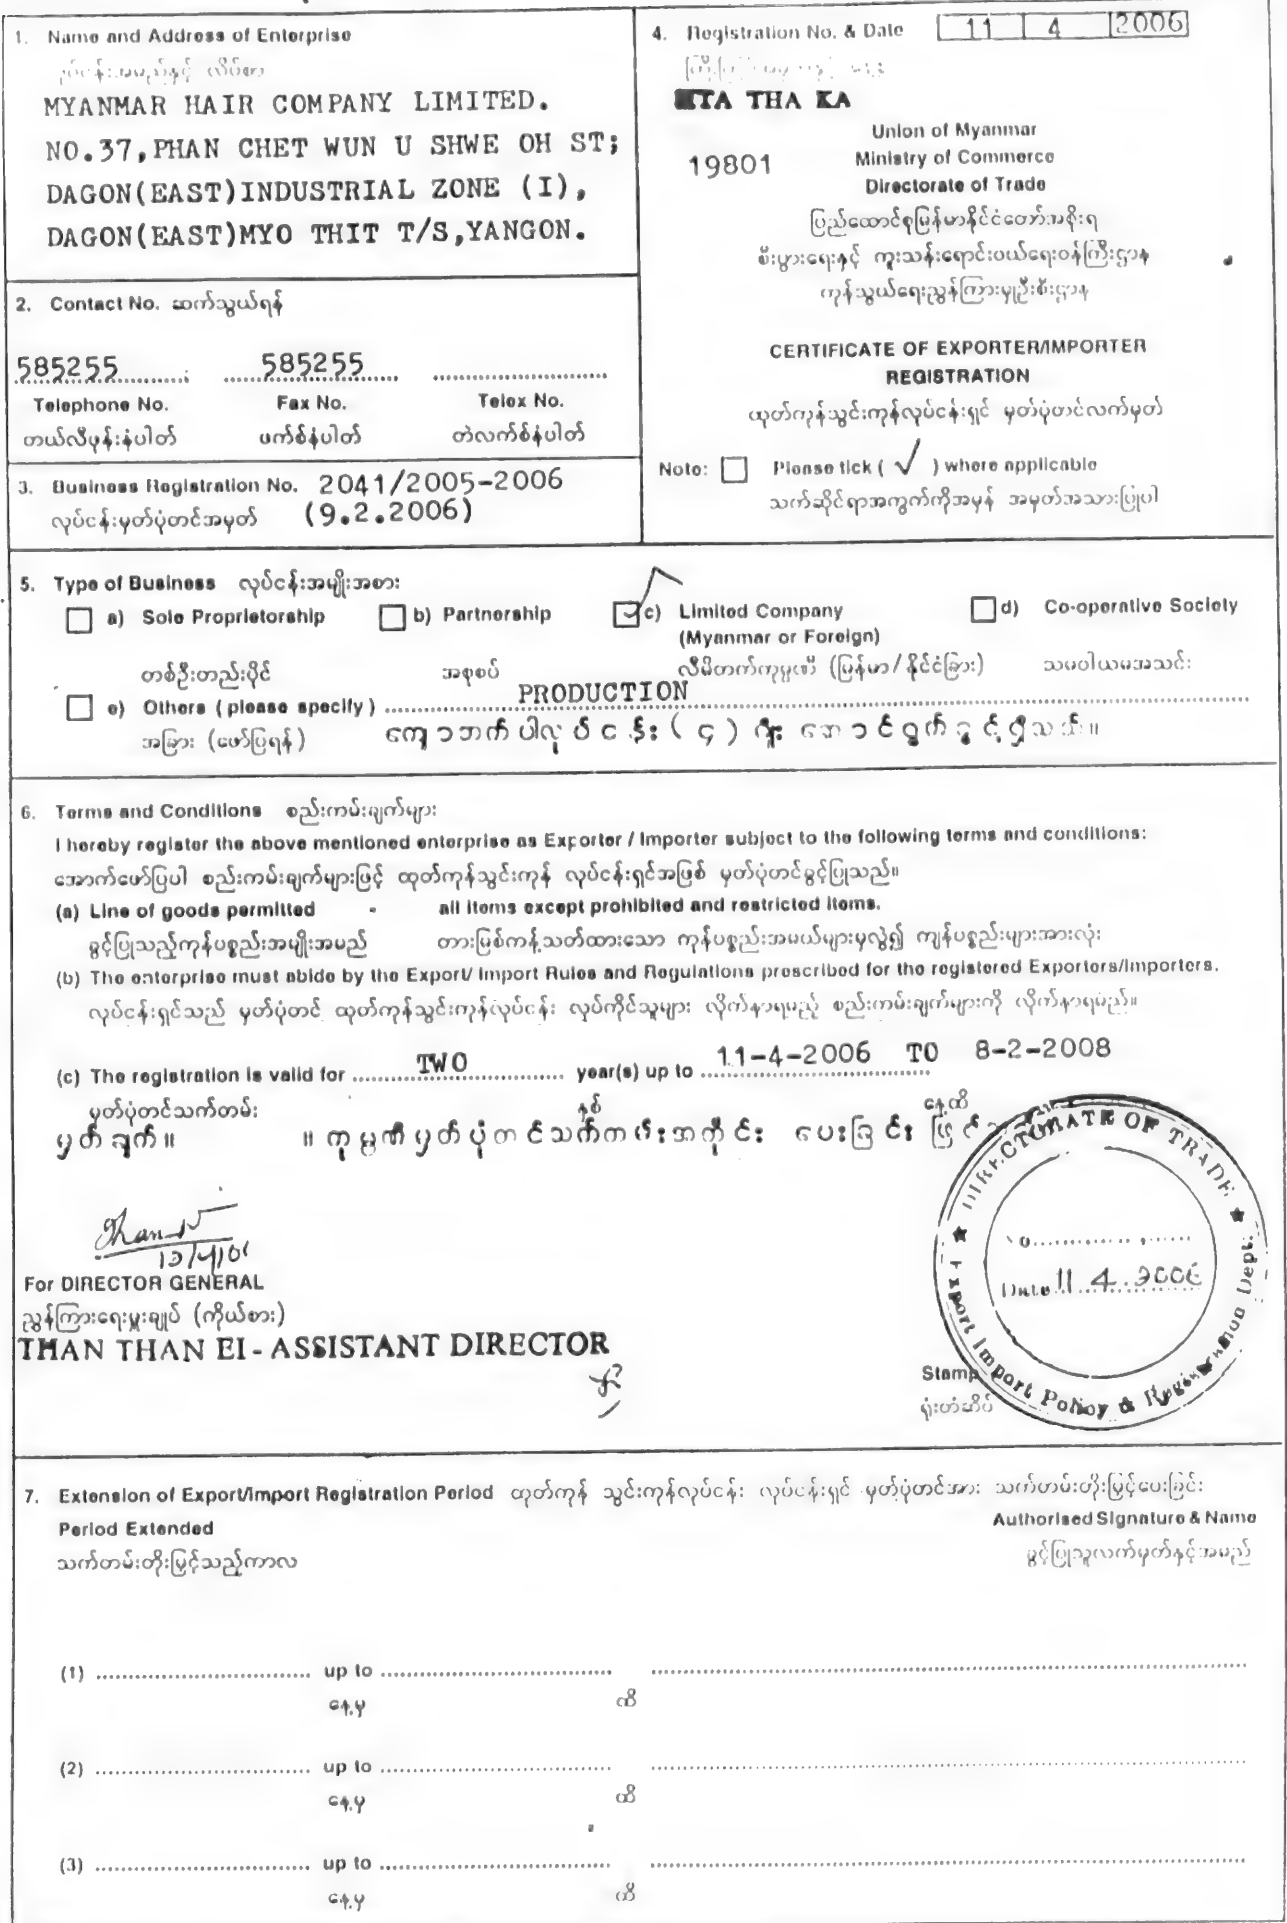 1. Name and Address of Enterprise
လုပ်ငန်းအမည်နှင့် လိပ်စာ
MYANMAR HAIR COMPANY LIMITED.
NO.37,PHAN CHET WUN U SHWE OH ST;
DAGON(EAST)INDUSTRIAL ZONE (I),
DAGON(EAST)MYO THIT T/S,YANGON.
2. Contact No. ဆက်သွယ်ရန်
585255 585255
Telephone No. Fax No. Telex No.
တယ်လီဖုန်းနံပါတ် ဖက်စ်နံပါတ် တဲလက်စ်နံပါတ်
3. Business Registration No. 2041/2005-2006
လုပ်ငန်းမှတ်ပုံတင်အမှတ် (9.2.2006)
4. Registration No. & Date 11 4 2006
TA THA KA
19801
Union of Myanmar
Ministry of Commerce
Directorate of Trade
ပြည်ထောင်စုမြန်မာနိုင်ငံတော်အစိုးရ
စီးပွားရေးနှင့် ကူးသန်းရောင်းဝယ်ရေးဝန်ကြီးဌာန
ကုန်သွယ်ရေးညွှန်ကြားမှုဦးစီးဌာန
CERTIFICATE OF EXPORTER/IMPORTER
REGISTRATION
ထုတ်ကုန်သွင်းကုန်လုပ်ငန်းရှင် မှတ်ပုံတင်လက်မှတ်
Note: Please tick ( √ ) where applicable
သက်ဆိုင်ရာအကွက်ကိုအမှန် အမှတ်အသားပြုပါ
5. Type of Business လုပ်ငန်းအမျိုးအစား
a) Sole Proprietorship b) Partnership c) Limited Company d) Co-operative Society
(Myanmar or Foreign)
တစ်ဦးတည်းပိုင် အစုစပ် လီမိတက်ကုမ္ပဏီ (မြန်မာ/နိုင်ငံခြား) သမဝါယမအသင်း
e) Others ( please specify ) PRODUCTION
အခြား (ဖော်ပြရန်) ကျောဘက်ပါလုပ်ငန်း ( ၄ ) မျိုး ဆောင်ရွက်ခွင့်ရှိသည်။
6. Terms and Conditions စည်းကမ်းချက်များ
I hereby register the above mentioned enterprise as Exporter / Importer subject to the following terms and conditions:
အောက်ဖော်ပြပါ စည်းကမ်းချက်များဖြင့် ထုတ်ကုန်သွင်းကုန် လုပ်ငန်းရှင်အဖြစ် မှတ်ပုံတင်ခွင့်ပြုသည်။
(a) Line of goods permitted - all items except prohibited and restricted items.
ခွင့်ပြုသည့်ကုန်ပစ္စည်းအမျိုးအမည် တားမြစ်ကန့်သတ်ထားသော ကုန်ပစ္စည်းအမယ်များမှလွဲ၍ ကျန်ပစ္စည်းများအားလုံး
(b) The enterprise must abide by the Export/ Import Rules and Regulations prescribed for the registered Exporters/Importers.
လုပ်ငန်းရှင်သည် မှတ်ပုံတင် ထုတ်ကုန်သွင်းကုန်လုပ်ငန်း လုပ်ကိုင်သူများ လိုက်နာရမည့် စည်းကမ်းချက်များကို လိုက်နာရမည်။
(c) The registration is valid for TWO year(s) up to 11-4-2006 TO 8-2-2008
မှတ်ပုံတင်သက်တမ်း နှစ် နေ့ထိ
မှတ်ချက်။ ။ ကုမ္ပဏီမှတ်ပုံတင်သက်တမ်းအတိုင်း ပေးခြင်း
DIRECTORATE OF TRADE
No
Date 11.4.2006
Export Import Policy & Registration Dept.
For DIRECTOR GENERAL
ညွှန်ကြားရေးမှူးချုပ် (ကိုယ်စား)
THAN THAN EI - ASSISTANT DIRECTOR
Stamp
ရုံးတံဆိပ်
7. Extension of Export/Import Registration Period ထုတ်ကုန် သွင်းကုန်လုပ်ငန်း လုပ်ငန်းရှင် မှတ်ပုံတင်အား သက်တမ်းတိုးမြှင့်ပေးခြင်း
Period Extended Authorised Signature & Name
သက်တမ်းတိုးမြှင့်သည့်ကာလ ခွင့်ပြုသူလက်မှတ်နှင့်အမည်
(1) up to
နေ့မှ ထိ
(2) up to
နေ့မှ ထိ
(3) up to
နေ့မှ ထိ